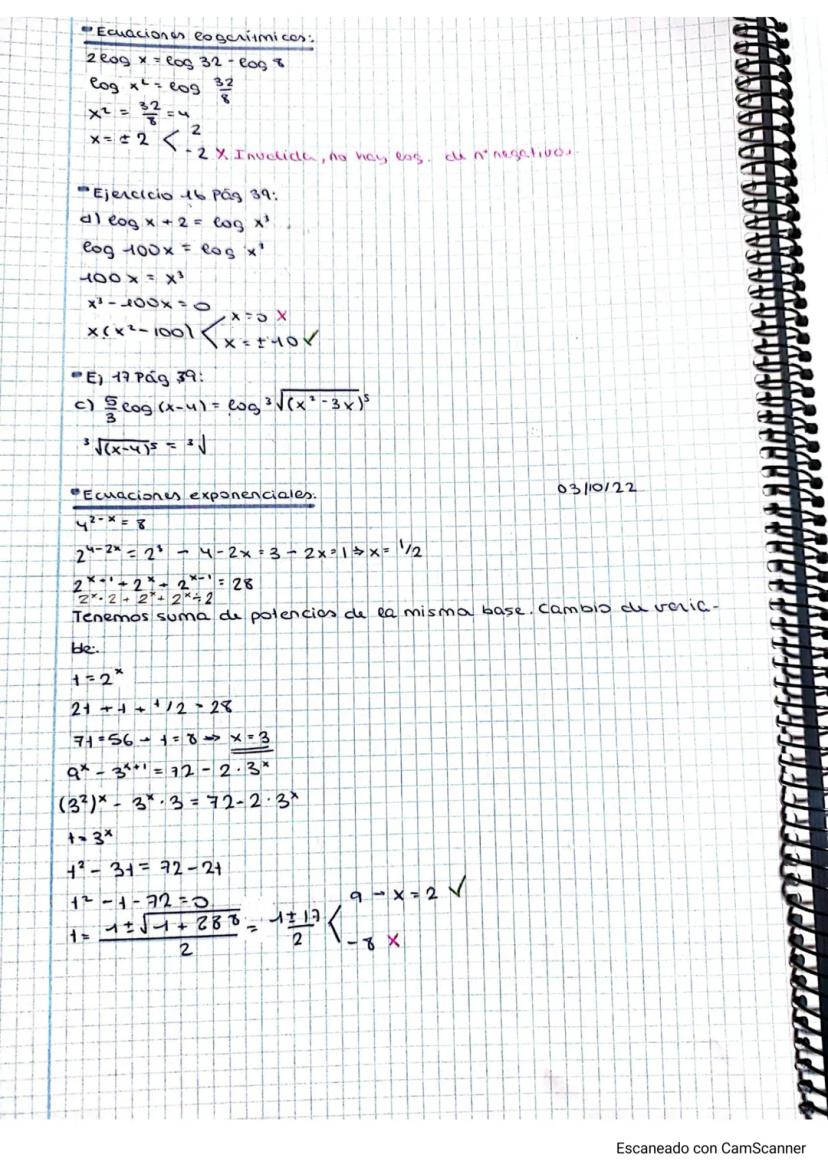 Ecuaciones logarítmicas:
2log x = log 32 - log 8
log x² = log 32/8
x² = 32/8 = 4
x = ± 2 < 2
- 2 X Invalida, no hay log. de nº negativos
Ejercicio 16 Pág 39:
d) log x + 2 = log x³
log 100x = log x³
100x = x³
x³ - 100x = 0
x(x² - 100) < x = 0 X
x = ± 10 ✓
Ej 17 Pág 39:
c) 5/3 log (x-4) = log ³√(x² - 3x)⁵
³√(x-4)⁵ = ³√
Ecuaciones exponenciales:
03/10/22
4²⁻ˣ = 8
2⁴⁻²ˣ = 2³ → 4 - 2x = 3 → 2x = 1 ⇒ x = 1/2
2ˣ⁺¹ + 2ˣ + 2ˣ⁻¹ = 28
2ˣ·2 + 2ˣ + 2ˣ÷2
Tenemos suma de potencias de la misma base. Cambio de varia-
ble:
t = 2ˣ
2t + t + t/2 = 28
7t = 56 → t = 8 ⇒ x = 3
9ˣ - 3ˣ⁺¹ = 72 - 2·3ˣ
(3²)ˣ - 3ˣ·3 = 72 - 2·3ˣ
t = 3ˣ
t² - 3t = 72 - 2t
t² - t - 72 = 0
t = (1 ± √1 + 288)/2 = (1 ± 17)/2 < 9 → x = 2 ✓
- 8 X
Escaneado con CamScanner